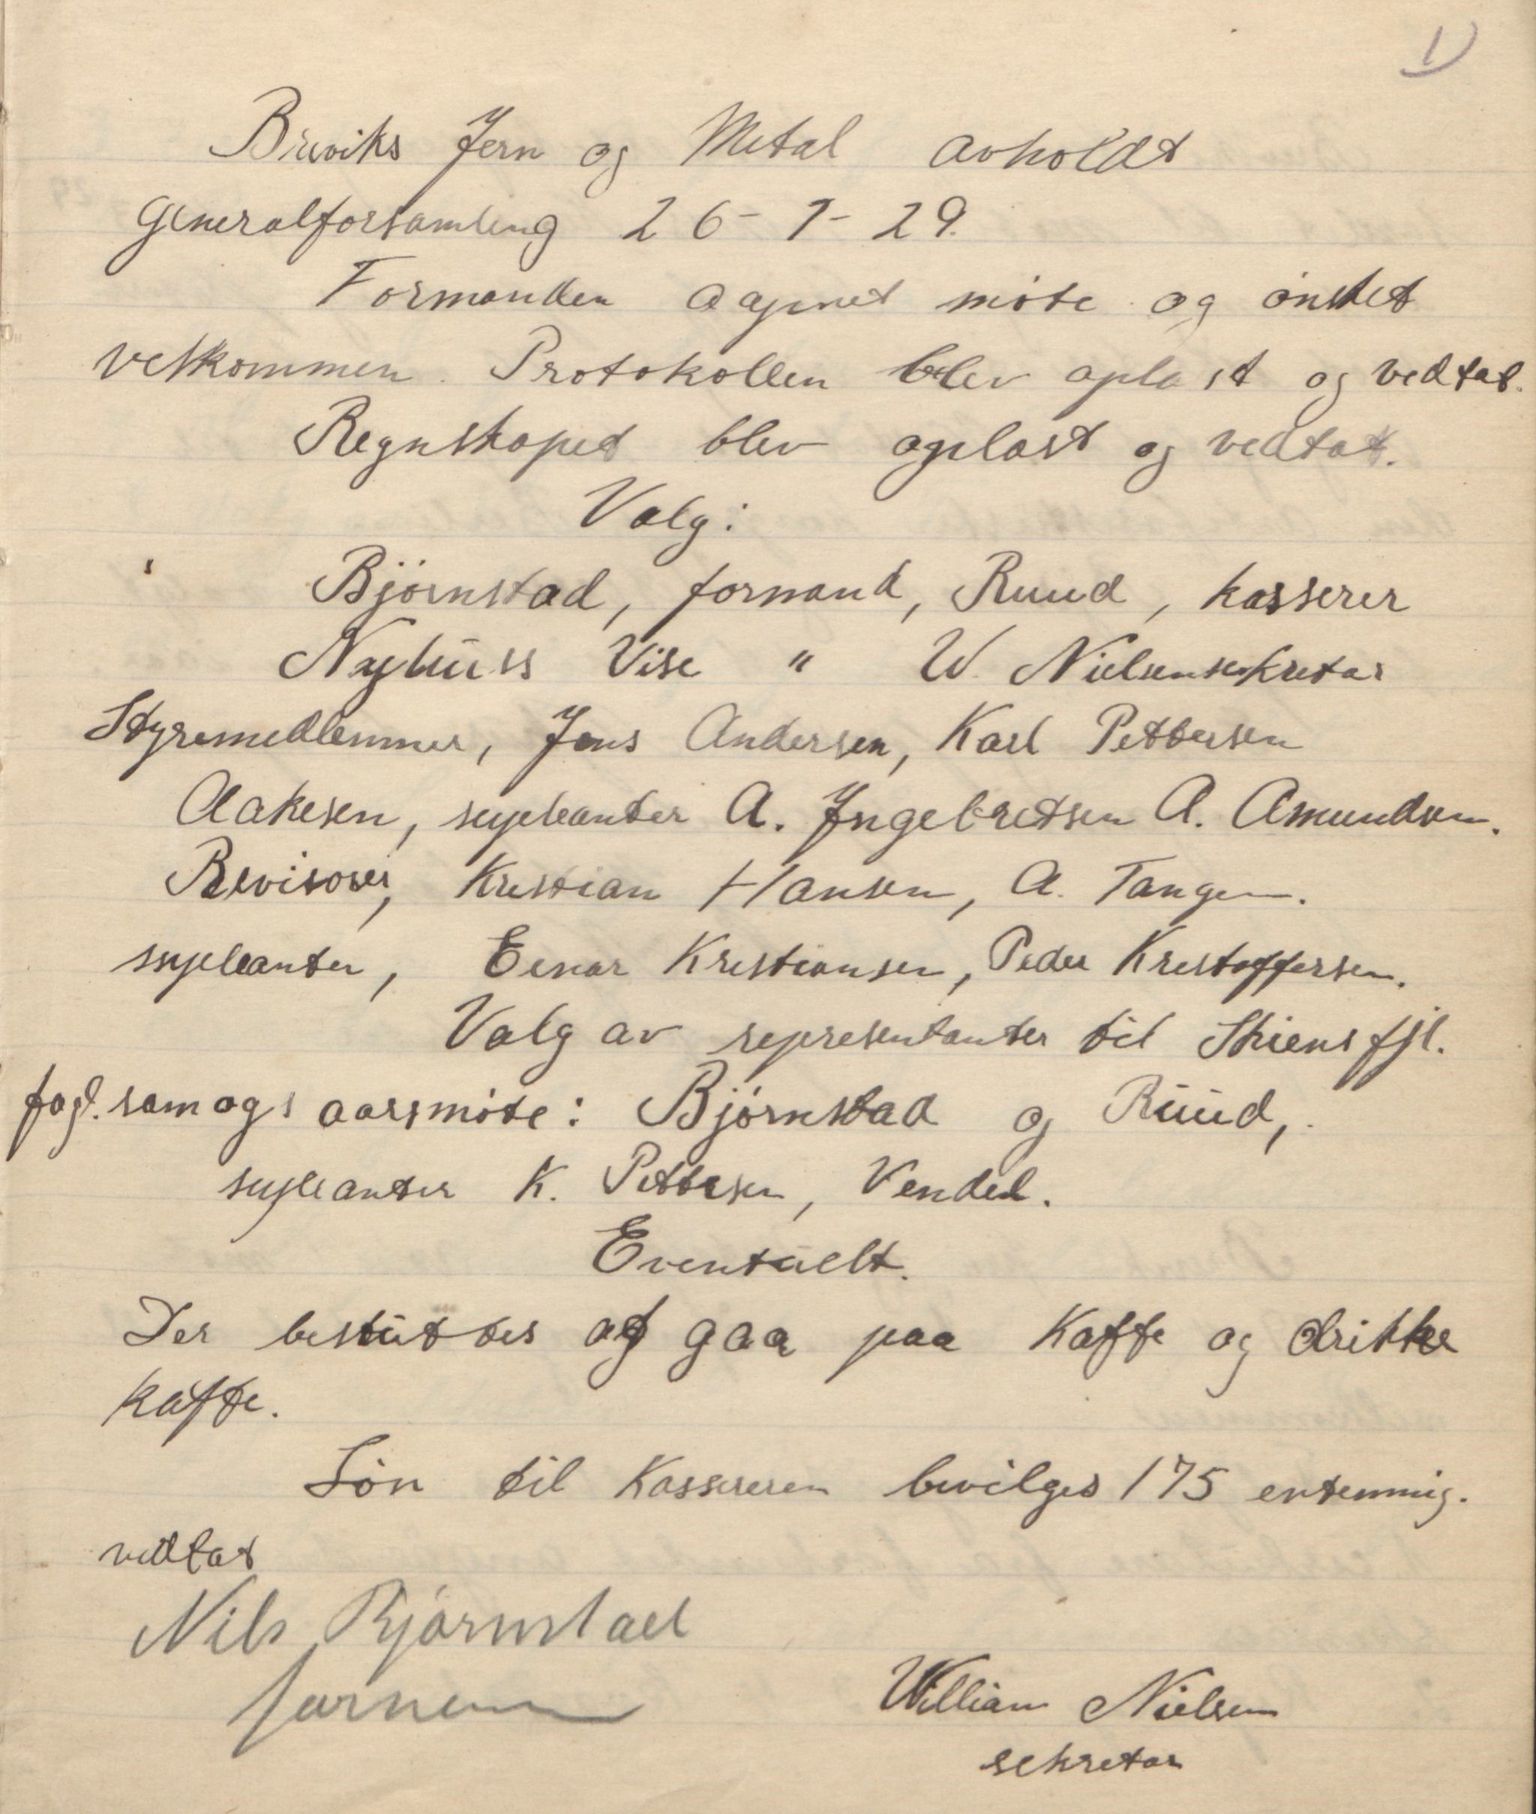 1)
Breviks Jern og Metal avholdt
Generalforsamling 26-1-29.
Formanden aapnet möte og önsket
velkommen. Protokollen blev oplast og vedtat.
Regnskapet blev oplast og vedtat.
Valg:
Björnstad, formand, Ruud, kasserer
Nyhuss Vise " W. Nielsen sekretar
Styremedlemmer, Jens Andersen, Karl Pettersen
Aakesen, supleanter A. Ingebretsen A. Amundsen.
Revisorer, Kristian Hansen, A. Tangen.
supleanter, Einar Kristiansen, Peder Kristoffersen.
Valg av representanter til Skiensfjl.
fagl. samorgs aarsmöte: Björnstad og Ruud,
supleanter K. Pettersen, Vendel.
Eventuelt.
Der besluttes at gaa paa Kaffe og drikke
kaffe.
Lön til Kassereren bevilges 175 enstemmig.
vedtat
Nils Björnstad
formann
William Nielsen
sekretar